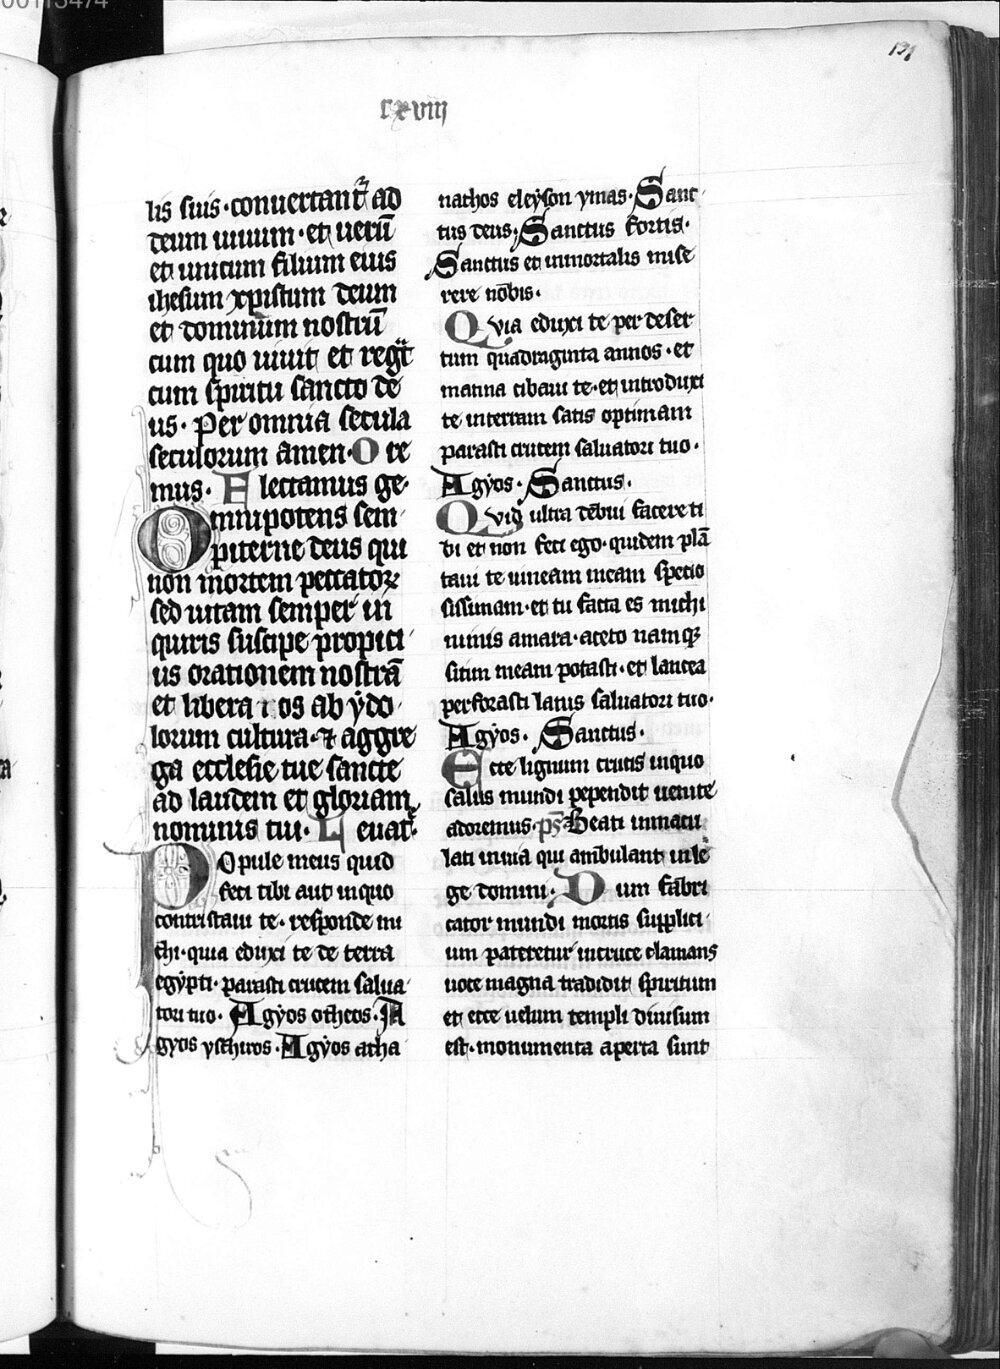 cxviii
lis suis·conuertant᷑ ad
deum uiuum·et uerū
et unicum filium eius
ihesum xpistum deum
et dominum nostrū
cum quo uiuit et regt̄
cum spiritu sancto de
us·Per omnia secula
seculorum amen·O re
mus· Flectamus ge·
Omnipotens sem
piterne deus qui
non mortem peccatoꝝ
sed uitam semper in
quiris suscipe propici
us orationem nostrā
et libera nos ab ẏdo
lorum cultura·⁊ aggre
ga ecclesie tue sancte
ad laudem et gloriam
nominis tui· Leuat᷑·
Popule meus quid
feci tibi aut in quo
contristaui te·responde mi
chi·quia eduxi te de terra
egẏpti·parasti crucem salua
tori tuo·Agẏos otheos·A
gyos yschiros·Agẏos atha
nathos eleẏson ymas·Sanc
tus deus·Sanctus fortis·
Sanctus et inmortalis mise
rere nōbis·
Qvia eduxi te per deser
tum quadraginta annos·et
manna cibaui te·et introduxi
te interram satis optimam
parasti crucem saluatori tuo·
Agẏos·Sanctus·
Qvid ultra debui facere ti
bi et non feci ego·quidem plā
taui te uineam meam specio
sissimam·et tu facta es michi
nimis amara·aceto namqꝫ
sitim meam potasti·et lancea
perforasti latus saluatori tuo·
Agẏos· Sanctus·
Ecce lignum crucis inquo
salus mundi pependit uenite
adoremus·ps̄·Beati inmacu
lati inuia qui ambulant in le
ge domini·Dum fabri
cator mundi mortis supplici
um pateretur incruce clamans
uoce magna tradidit spiritum
et ecce uelum templi diuisum
est·monumenta aperta sunt